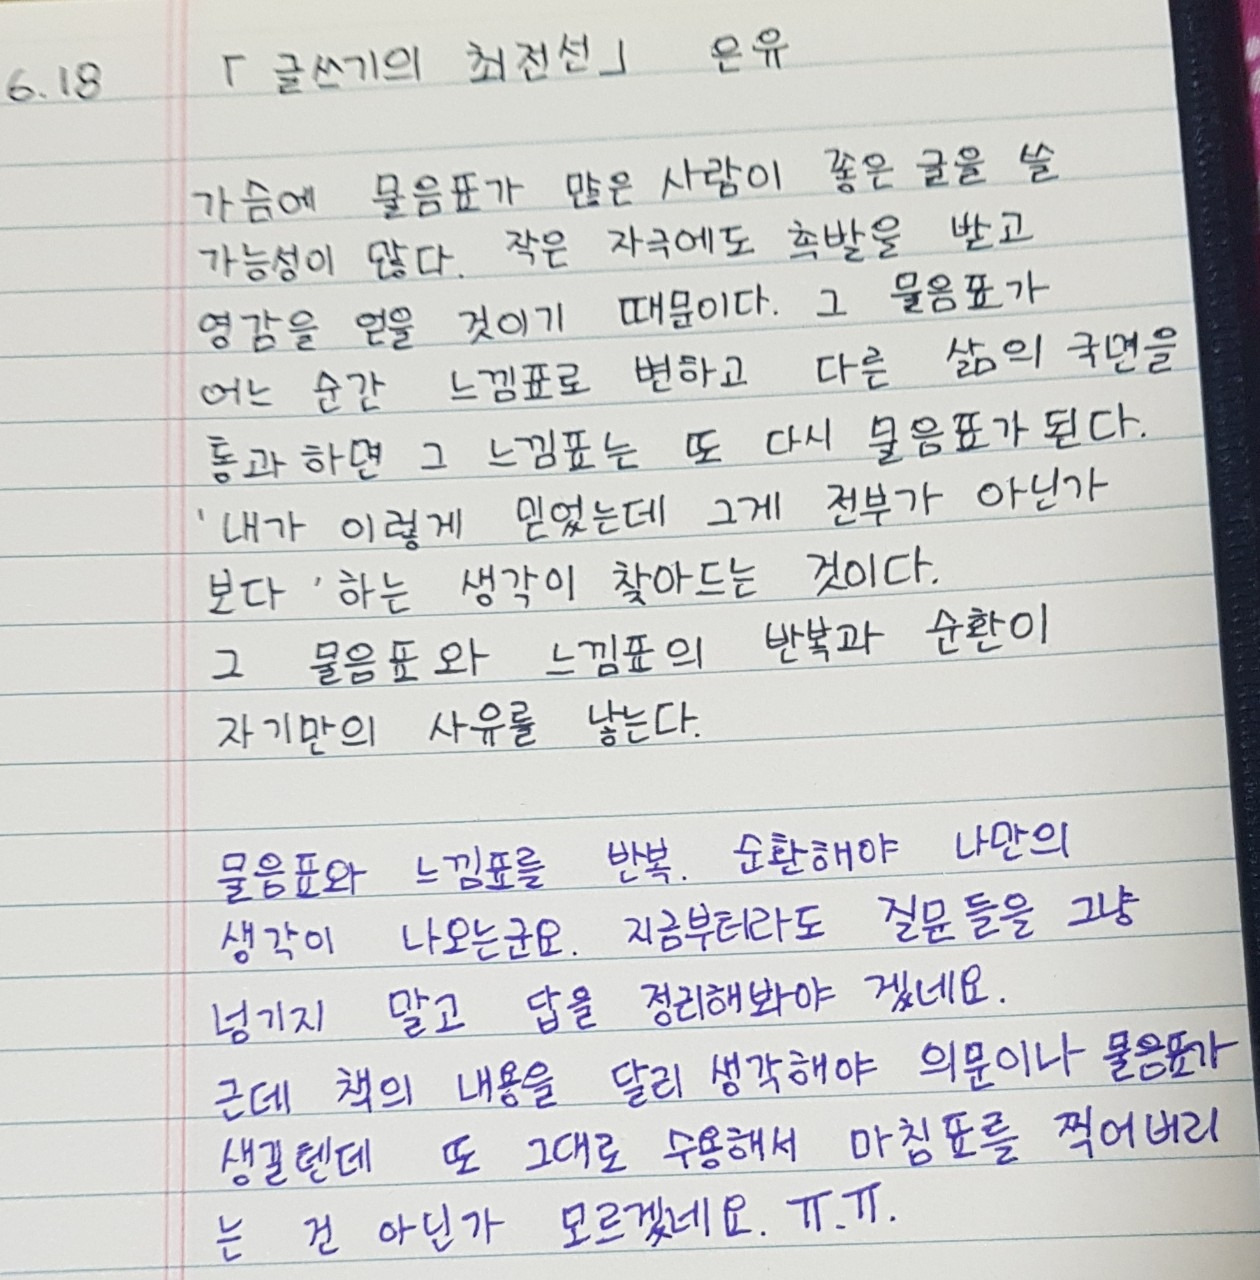 6.18 「글쓰기의 최전선」 은유
가슴에 물음표가 많은 사람이 좋은 글을 쓸
가능성이 많다. 작은 자극에도 촉발을 받고
영감을 얻을 것이기 때문이다. 그 물음표가
어느 순간 느낌표로 변하고 다른 삶의 국면을
통과하면 그 느낌표는 또 다시 물음표가 된다.
'내가 이렇게 믿었는데 그게 전부가 아닌가
보다' 하는 생각이 찾아드는 것이다.
그 물음표와 느낌표의 반복과 순환이
자기만의 사유를 낳는다.
물음표와 느낌표를 반복. 순환해야 나만의
생각이 나오는군요. 지금부터라도 질문들을 그냥
넘기지 말고 답을 정리해봐야 겠네요.
근데 책의 내용을 달리 생각해야 의문이나 물음표가
생길텐데 또 그대로 수용해서 마침표를 찍어버리
는 건 아닌가 모르겠네요. ㅠ.ㅠ.